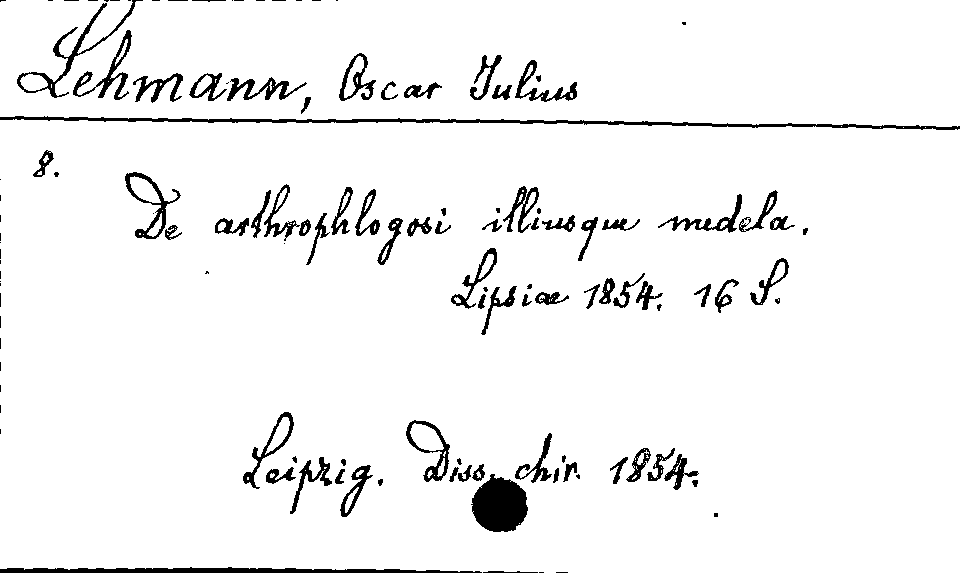 Lehmann, Oscar Julius
8.
De arthrophlogosi illiusque medela.
Lipsiae 1854. 16 S.
Leipzig. Diss. chir. 1854.